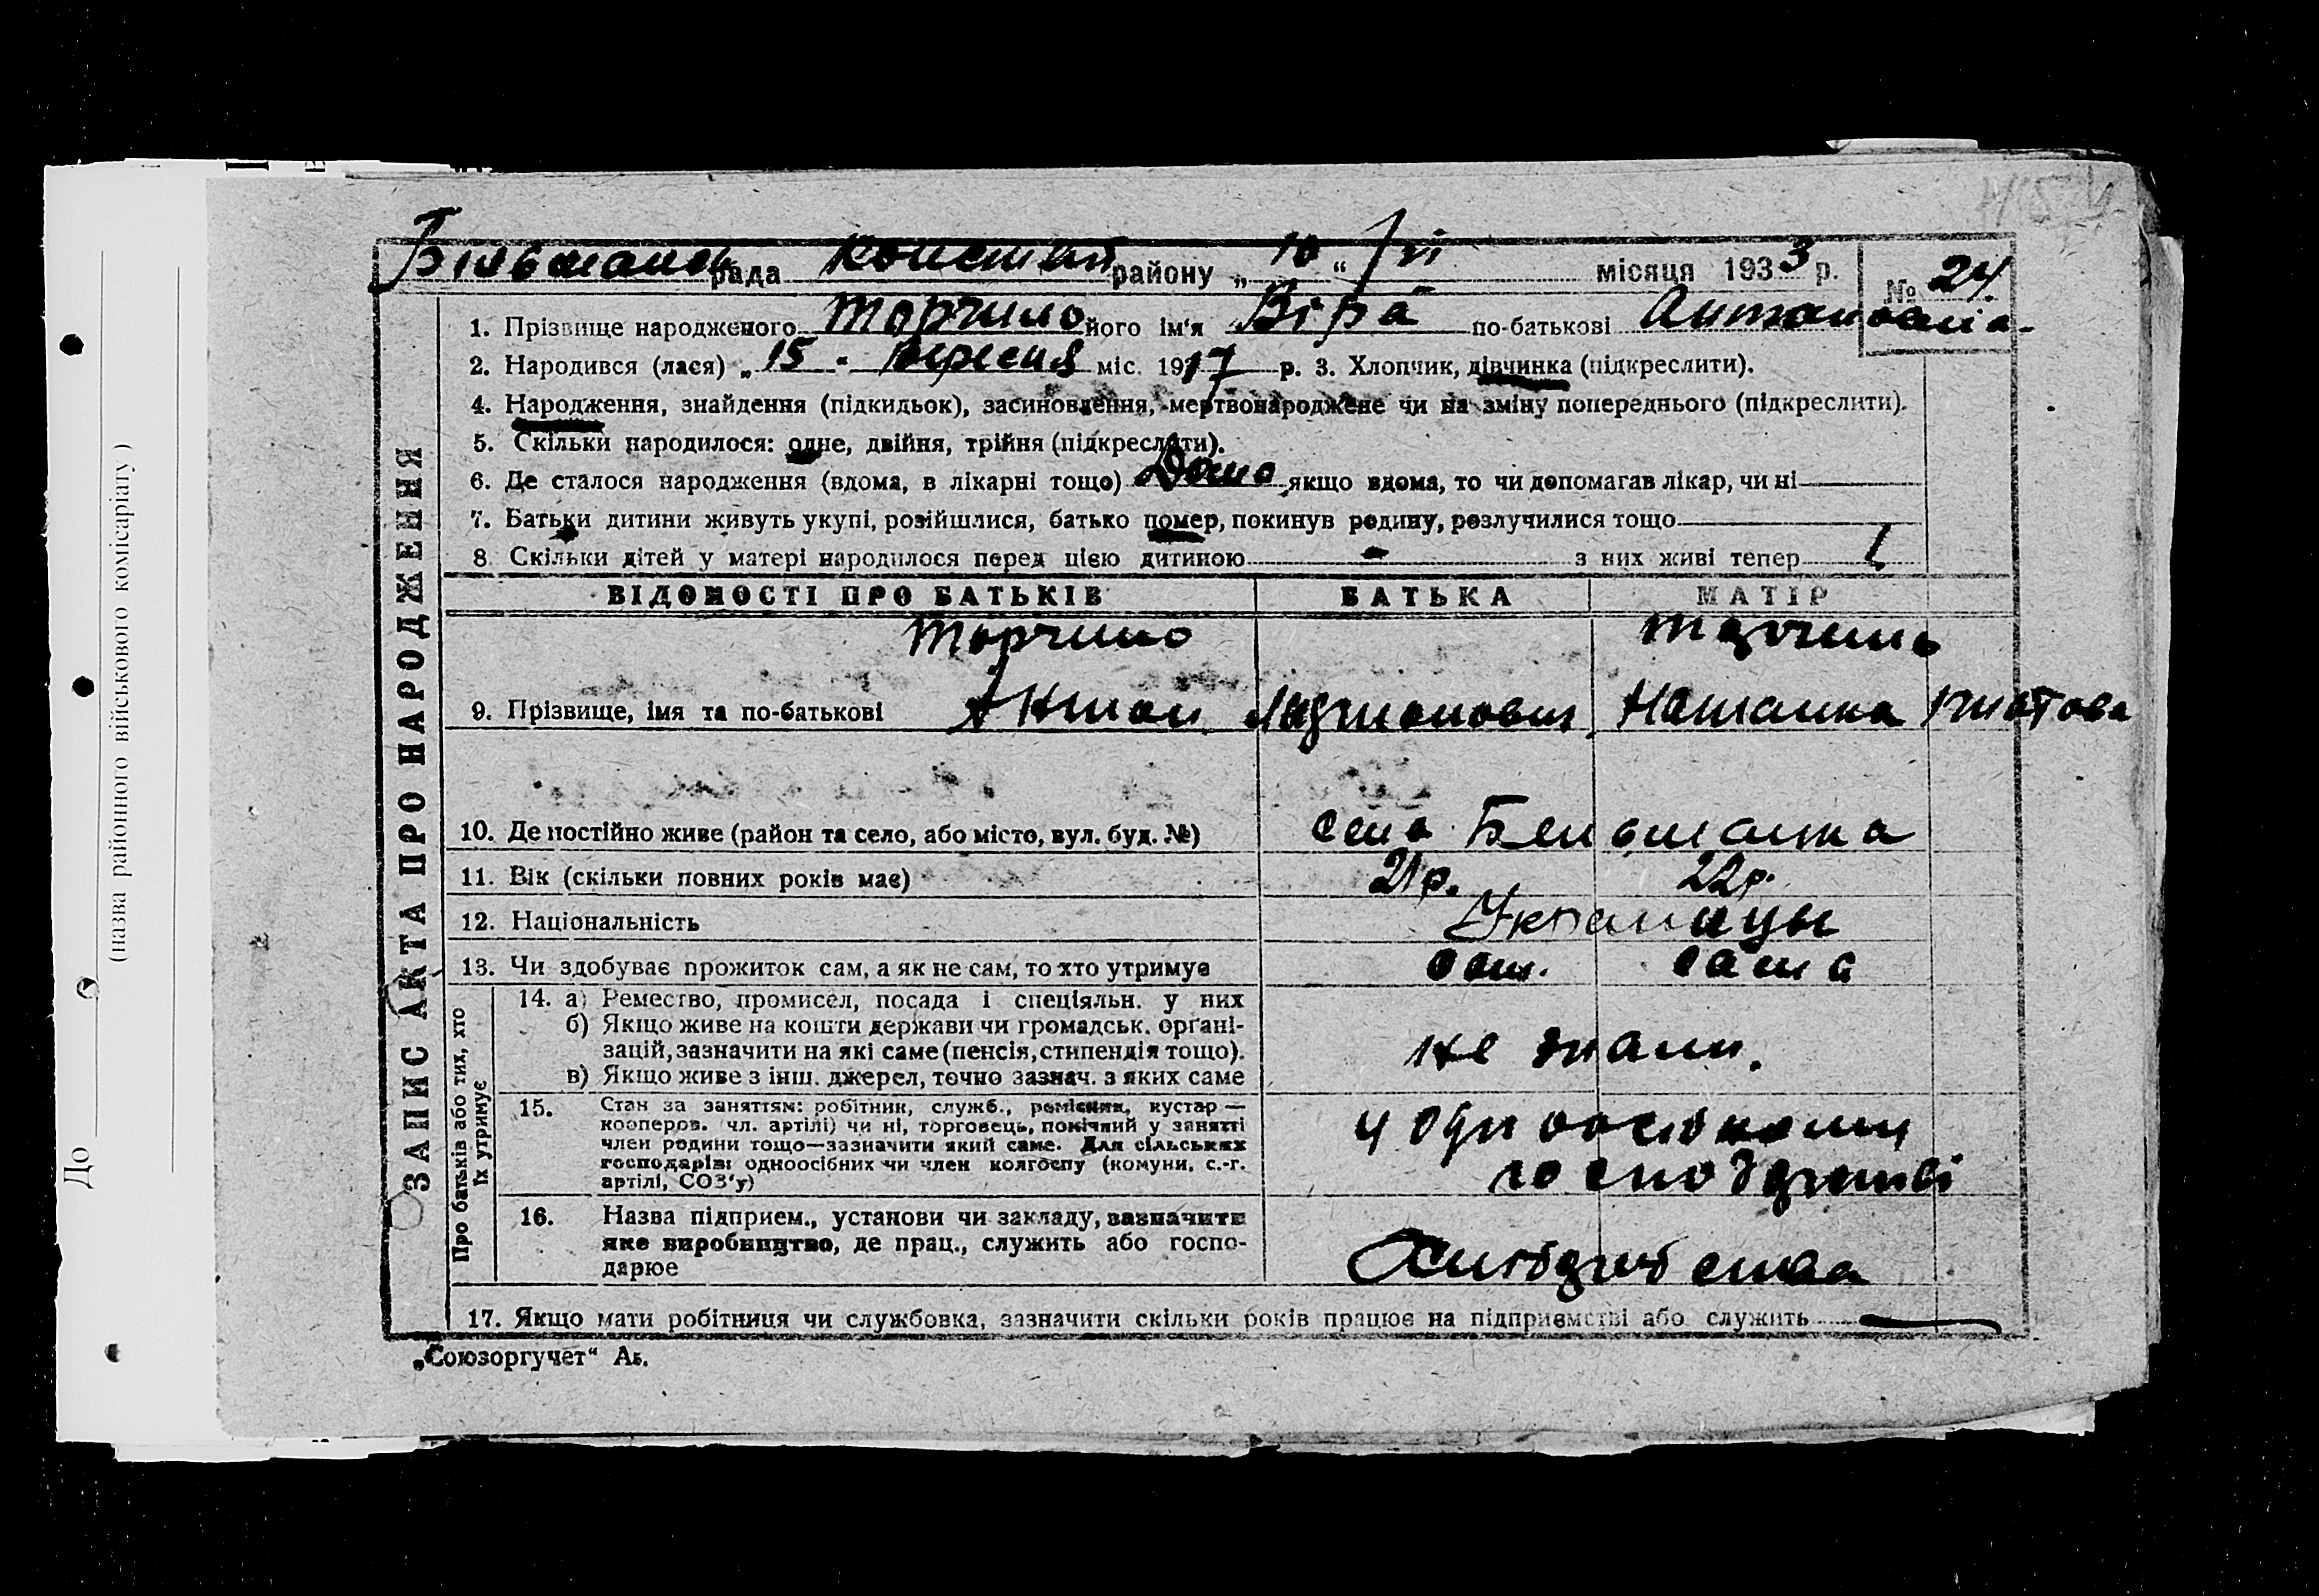 Більшанск рада Констант району „10“ /VII місяця 1933 р. № 24
1. Прізвище народженого Торчило його ім'я Віра по-батькові Антоновна
2. Народився (лася) „15" вересня міс. 1917 р. 3. Хлопчик, дівчинка (підкреслити).
4. Народження, знайдення (підкидьок), засиновлення, мертвонароджене чи на зміну попереднього (підкреслити).
5. Скільки народилося: одне, двійня, трійня (підкреслити).
6. Де сталося народження (вдома, в лікарні тощо) Дома якщо вдома, то чи допомагав лікар, чи ні
7. Батьки дитини живуть укупі, розійшлися, батько помер, покинув родину, розлучилися тощо
8. Скільки дітей у матері народилося перед цією дитиною - з них живі тепер 1
ВІДОМОСТІ ПРО БАТЬКІВ БАТЬКА МАТІР
Торчило Торчило
9. Прізвище, імя та по-батькові Антон Наталка
10. Де постійно живе (район та село, або місто, вул. буд. №) село Більшанка
11. Вік (скільки повних років має) 21 р. 22 р.
12. Національність Украинцы
13. Чи здобуває прожиток сам, а як не сам, то хто утримує сам. сама
Про батьків або тих, хто їх утримує
14. а) Ремество, промисел, посада і спеціяльн. у них
б) Якщо живе на кошти держави чи громадськ. органі-
зацій, зазначити на які саме (пенсія, стипендія тощо).
в) Якщо живе з інш. джерел, точно зазнач. з яких саме
не знали.
15. Стан за заняттям: робітник, служб., ремісник, кустар —
кооперов. чл. артілі) чи ні, торговець, помічний у занятті
член родини тощо—зазначити який саме. Для сільських
господарів: одноосібних чи член колгоспу (комуни, с.-г.
артілі, СОЗ'у)
у одноосібному
господарстві
16. Назва підприєм., установи чи закладу, зазначити
яке виробництво, де прац., служить або госпо-
дарює
17. Якщо мати робітниця чи службовка, зазначити скільки років працює на підприємстві або служить
„Союзоргучет“ Аб.
ЗАПИС АКТА ПРО НАРОДЖЕННЯ
До
(назва районного військового комісаріату)